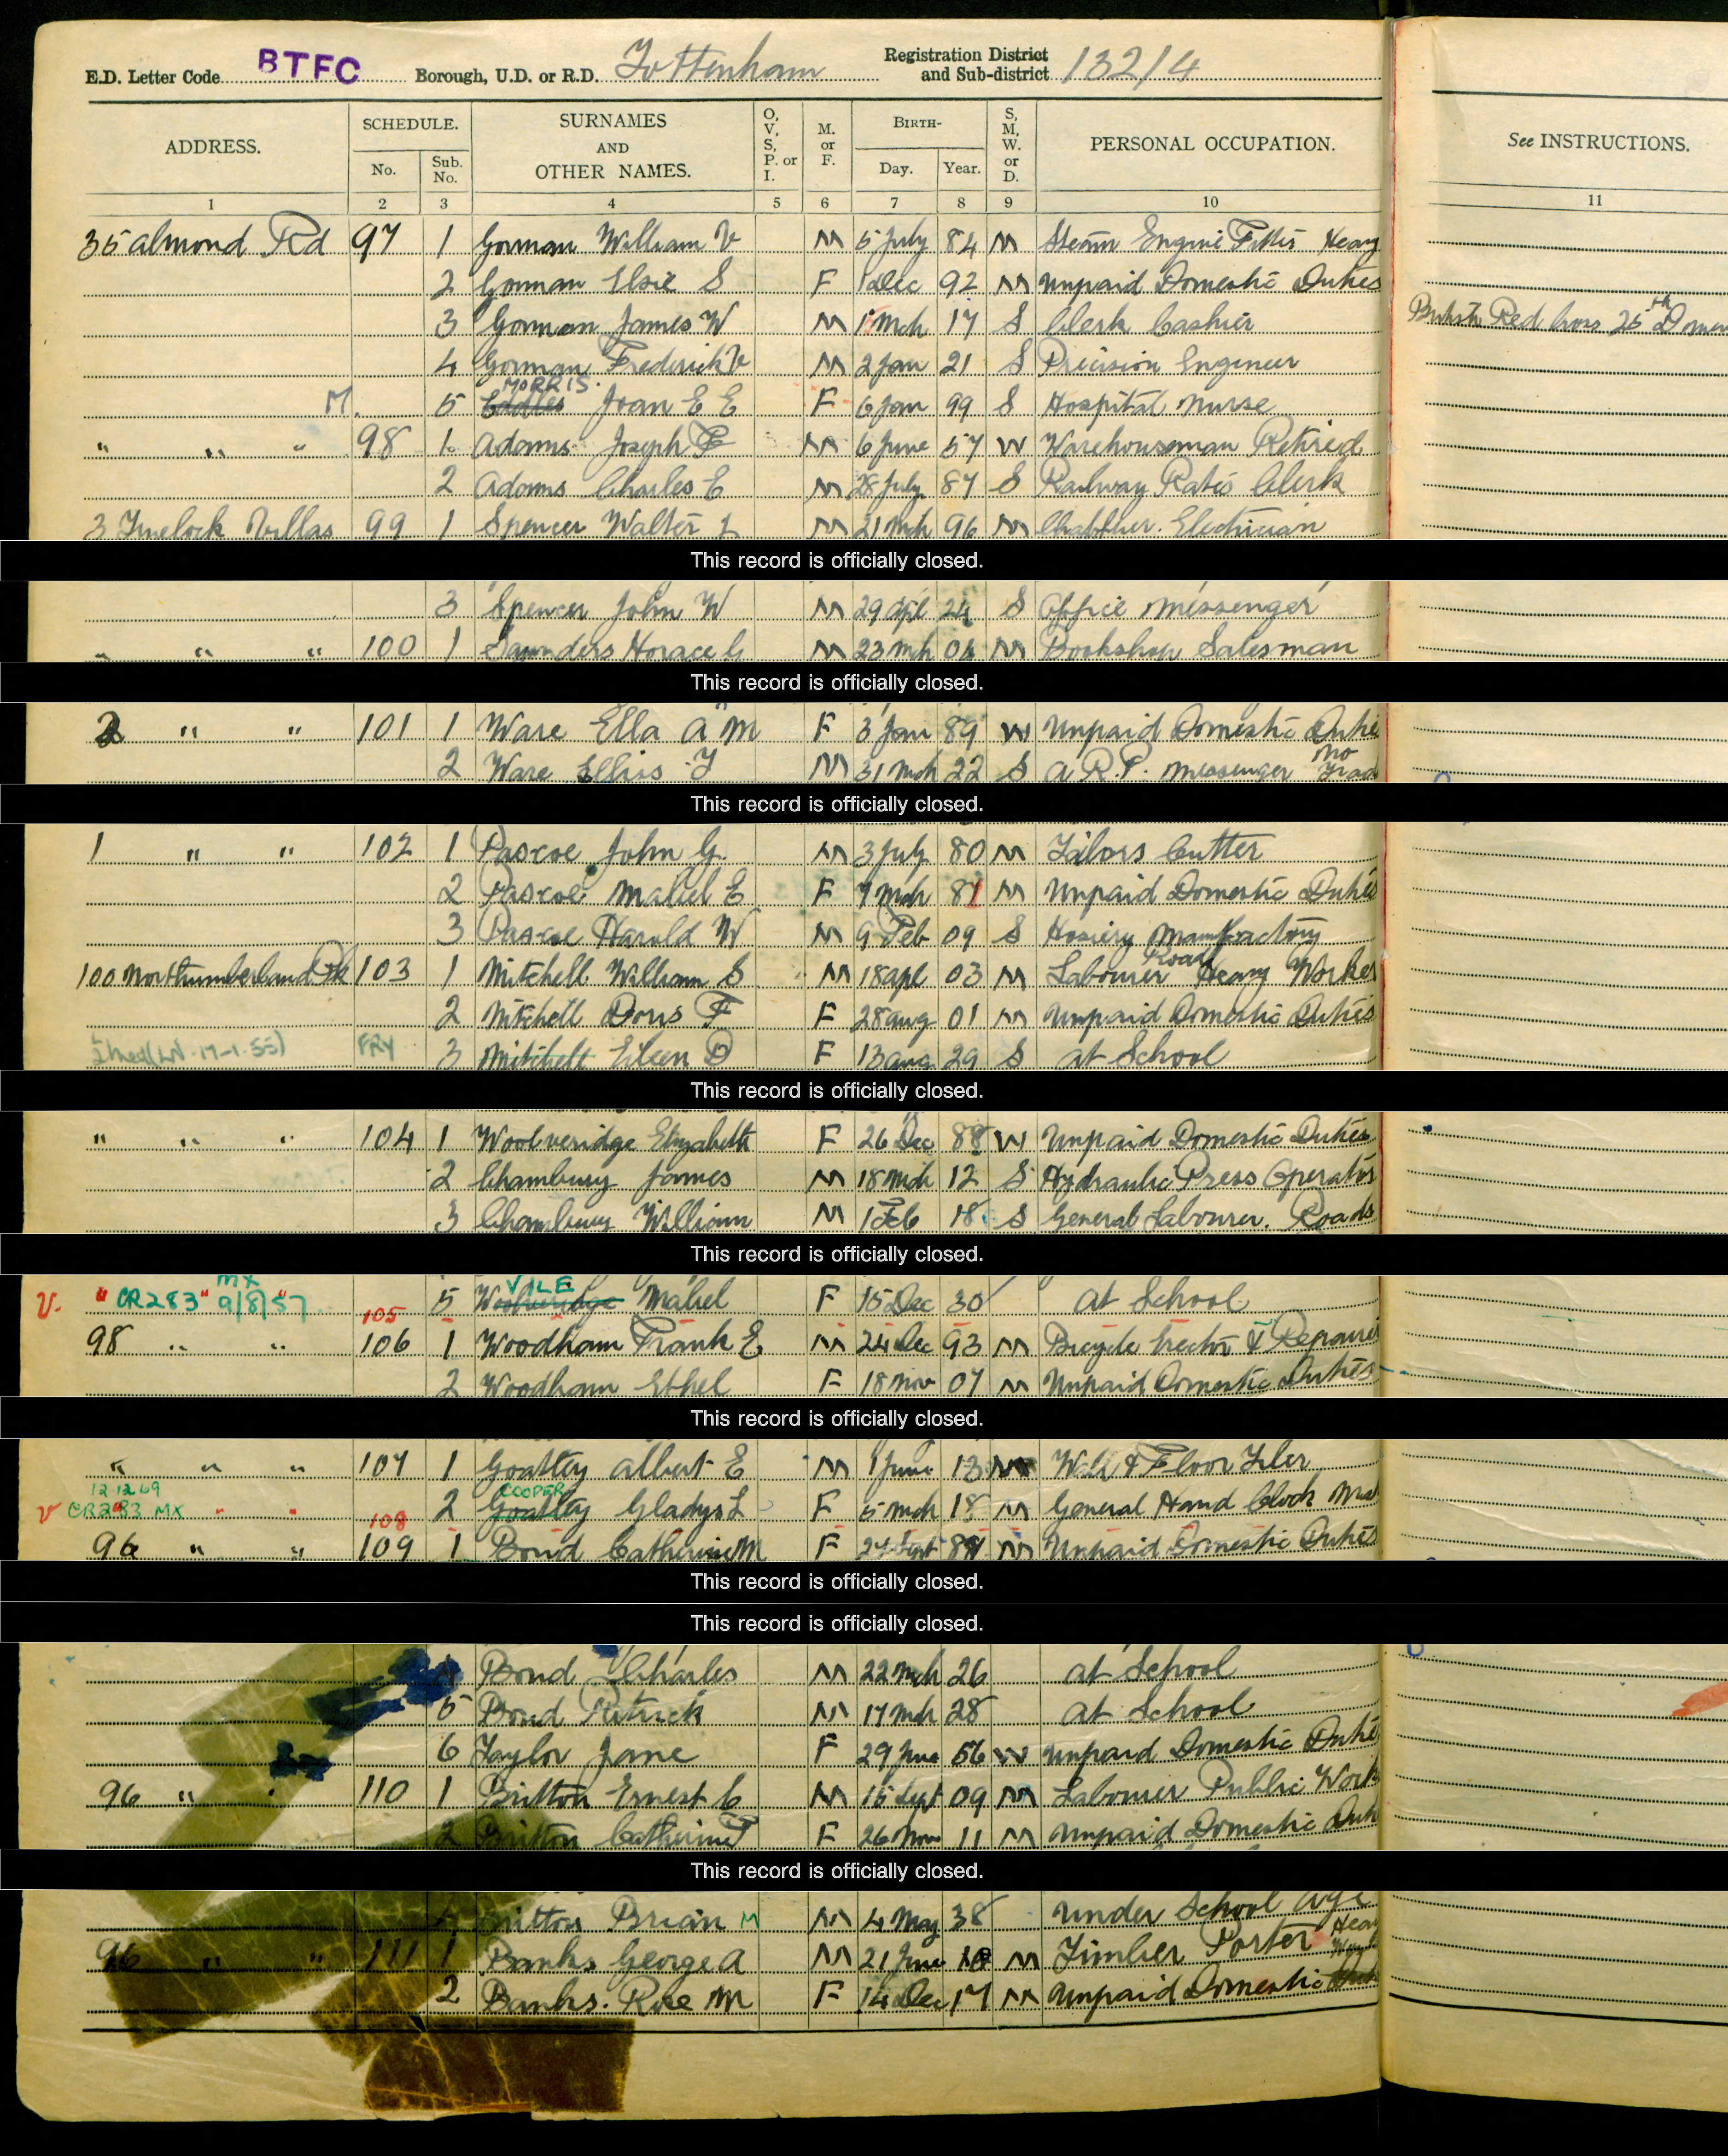 E.D. Letter Code BTFC Borough, U.D. or R.D. Tottenham Registration District and Sub-district 132/4
ADDRESS. SCHEDULE. No. Sub. No. SURNAMES AND OTHER NAMES. O, V, S, P. or I. M. or F. BIRTH- Day. Year. S, M, W. or D. PERSONAL OCCUPATION. See INSTRUCTIONS.
1 2 3 4 5 6 7 8 9 10 11
35 Almond Rd 97 1 Gorman William V M 5 July 84 M Steam Engine Fitter Heavy
2 Gorman Elsie S F 1 Dec 92 M Unpaid Domestic Duties
3 Gorman James W M 1 Mch 17 S Clerk Cashier British Red Cross 25th
4 Gorman Frederick V M 2 Jan 21 S Precision Engineer
MORRIS.
M. 5 Joan E E F 6 Jan 99 S Hospital Nurse
" " " 98 1 Adams Joseph F M 6 June 57 W Warehouseman Retired
2 Adams Charles E M 28 July 87 S Railway Rates Clerk
3 Villas 99 1 Spencer Walter L M 21 Mch 96 M Electrician
This record is officially closed.
3 Spencer John W M 29 Apl 24 S Office Messenger
" " " 100 1 Saunders Horace G M 23 Mch 04 M Bookshop Salesman
This record is officially closed.
2 " " 101 1 Ware Ella A M F 3 Jan 89 W Unpaid Domestic Dutie
2 Ware Ellis J M 31 Mch 22 S A.R.P. Messenger
This record is officially closed.
1 " " 102 1 Pascoe John G. M 3 July 80 M Tailors Cutter
2 Pascoe Mabel E F 7 Mch 87 M Unpaid Domestic Duties
3 Pascoe Harold W M 9 Feb 09 S Hosiery Manufactory
100 Northumberland Pk 103 1 Mitchell William S M 18 Apl 03 M Labourer Road Heavy Worker
2 Mitchell Doris F F 28 Aug 01 M Unpaid Domestic Duties
FRY 3 Mitchell Eileen D F 13 Aug 29 S At School
This record is officially closed.
" " " 104 1 Woolveridge Elizabeth F 26 Dec 88 W Unpaid Domestic Duties
2 Chambury James M 18 Mch 12 S Hydraulic Press Operator
3 Chambury William M 1 Feb 18 S General Labourer. Roads
This record is officially closed.
MX VILE
V. "CR283" 9/8/57 105 5 Woolveridge Mabel F 15 Dec 30 At School
98 " " 106 1 Woodham Frank E M 24 Dec 93 M Bicycle Erector & Repairer
2 Woodham Ethel F 18 Nov 07 M Unpaid Domestic Duties
This record is officially closed.
" " " 107 1 Goatley Albert E M 1 June 13 M Wall & Floor Tiler
12.12.69 COOPER
V CR283 MX " " 108 2 Goatley Gladys L F 5 Mch 18 M General Hand Clock
96 " " 109 1 Bond Catherine M F 27 Sept M Unpaid Domestic Duties
This record is officially closed.
This record is officially closed.
Bond Charles M 22 Mch 26 At School
5 Bond Patrick M 17 Mch 28 At School
6 Taylor Jane F 29 56 W Unpaid Domestic Dutie
96 " " 110 1 Britton Ernest C M 15 Sept 09 M Labourer Public Work
2 Britton Catherine F F 26 Nov 11 M Unpaid Domestic Dut
This record is officially closed.
Britton Brian M M 4 May 38 Under School Age
96 " " 111 1 Banks George A M 21 June M Timber Porter Heavy
2 Banks. Rose M F 14 Dec 17 M Unpaid Domestic